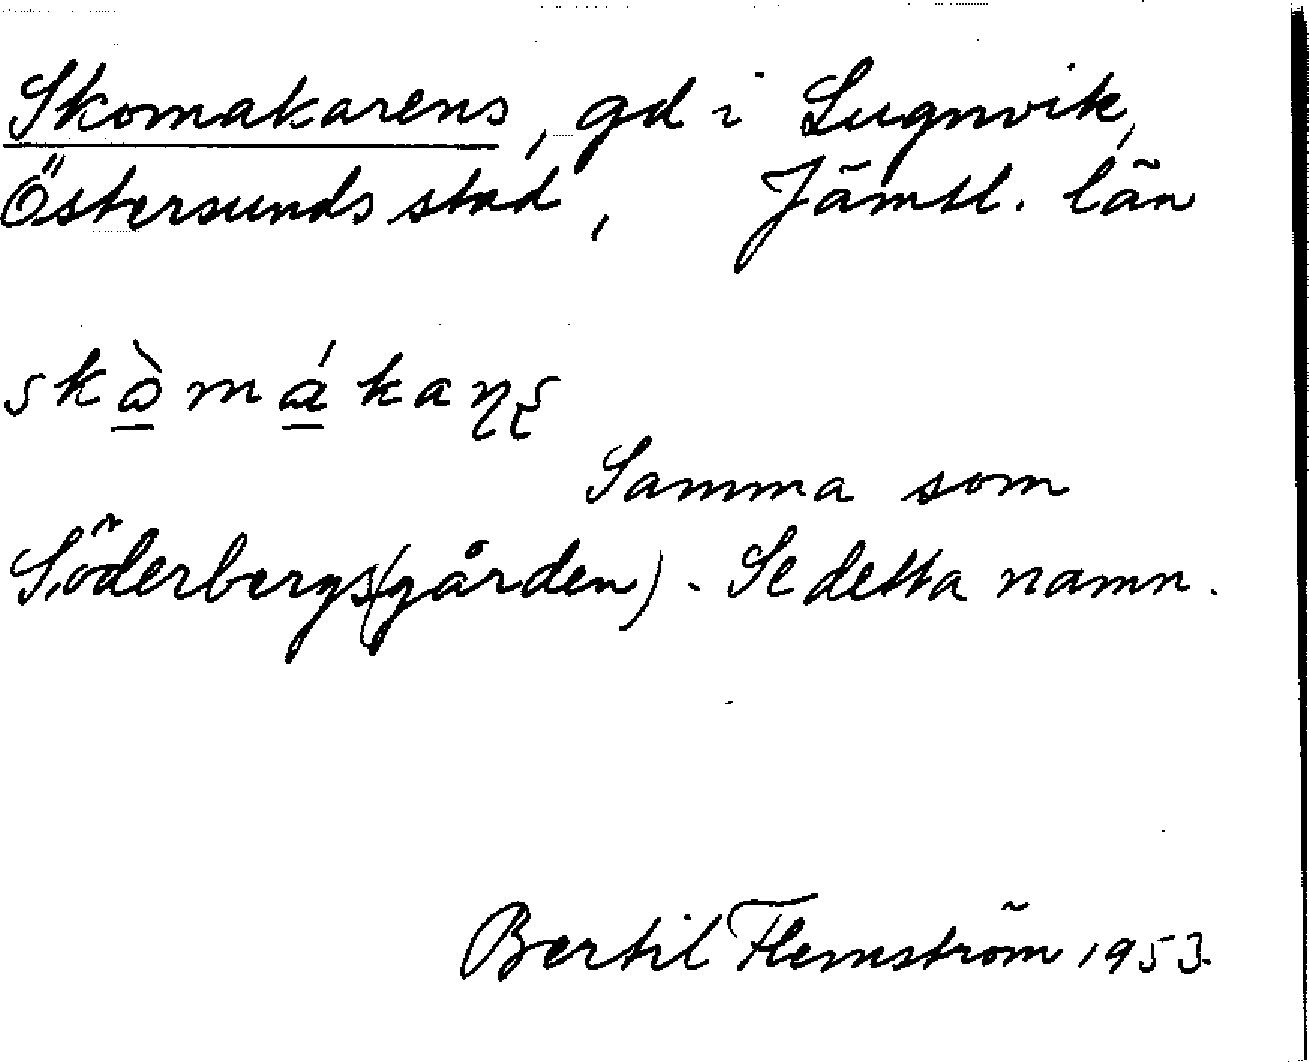 Skomakarens, gd i Lugnvik,
Östersunds stad, Jämtl. län
skò̱má̱kaɳʂ
Samma som
Söderbergs(gården). Se detta namn.
Bertil Flemström 1953.